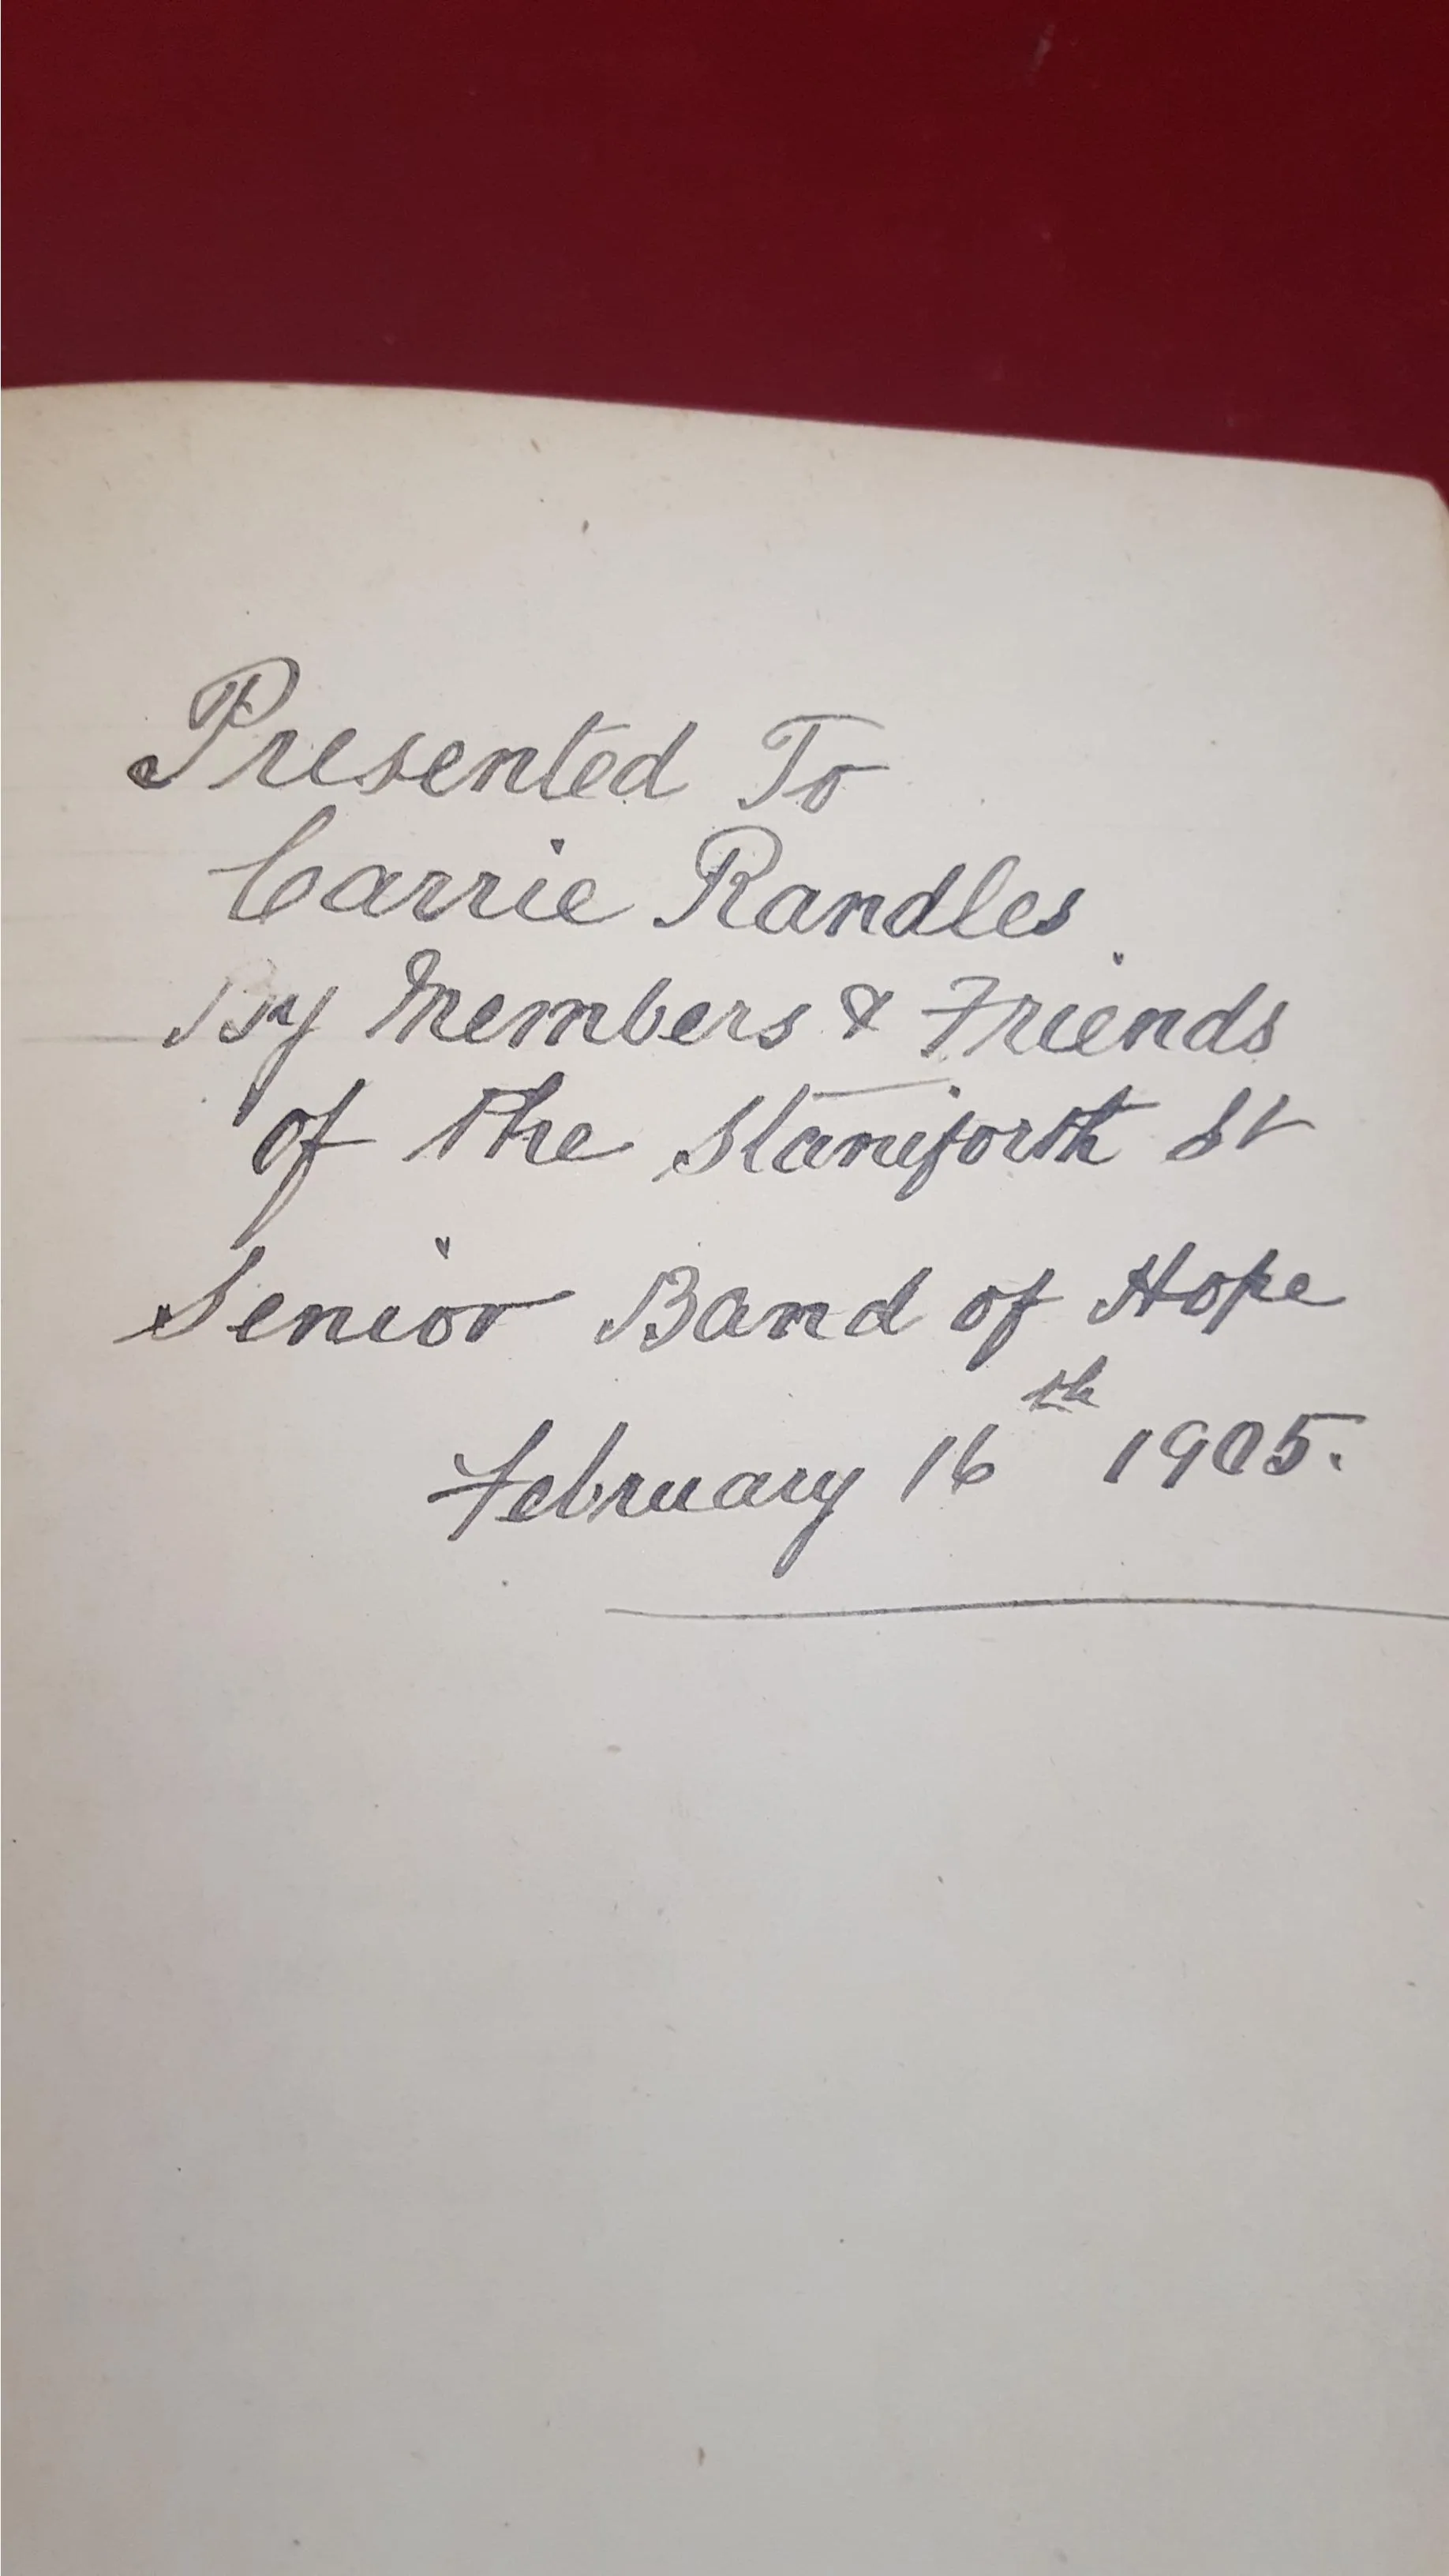 Presented To
Carrie Randles
By Members & Friends
of the Staniforth St
Senior Band of Hope
February 16th 1905.